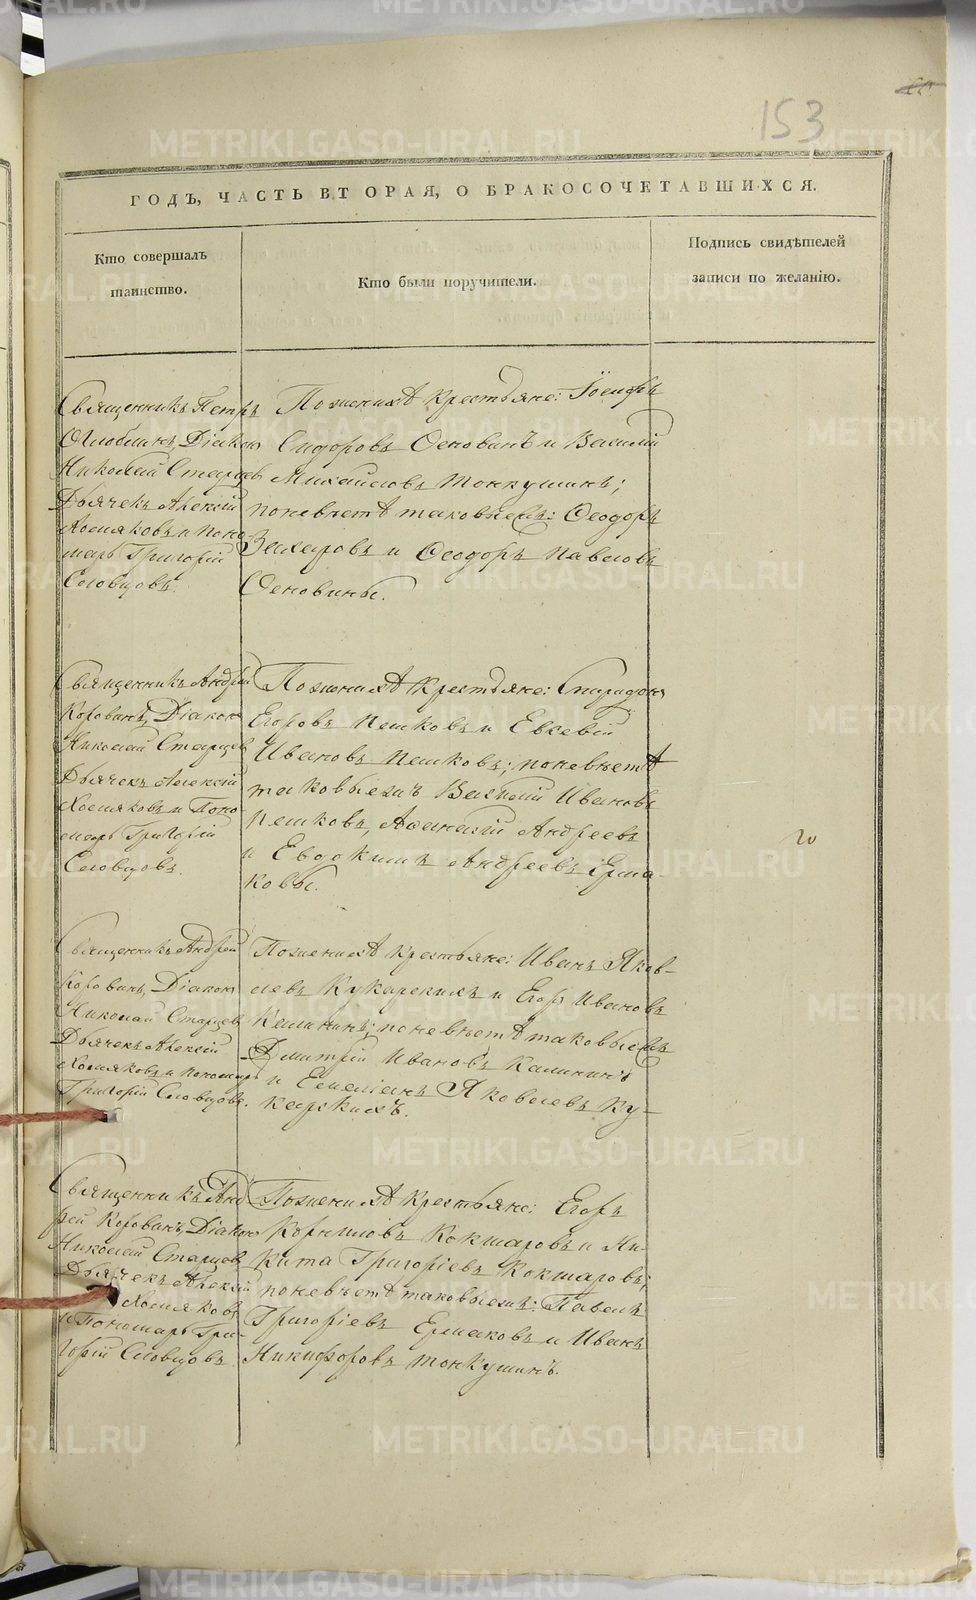 153
ГОДЪ, ЧАСТЬ ВТОРАЯ, О БРАКОСОЧЕТАВШИХСЯ.
Кто совершалъ
таинство.
Кто были поручители.
Подпись свидѣтелей
записи по желанію.
Священникъ Петръ
Оглоблинъ, Діаконъ
Николай Старцевъ
Дьячекъ Алексій
Хомяковъ и Поно-
марь Григорій
Словцовъ.
По женихѣ крестьяне: Іосифъ
Сидоровъ Осковинъ и Василій
Михайловъ Тонкушинъ;
по невѣстѣ таковыежъ: Ѳеодоръ
Захаровъ и Ѳеодоръ Павловъ
Осковины.
Священникъ Андрей
Корованъ, Діаконъ
Николай Старцевъ
Дьячекъ Алексій
Хомяковъ и Поно-
марь Григорій
Словцовъ
По женихѣ крестьяне: Спиридонъ
Егоровъ Пешковъ и Евсевій
Ивановъ Пешковъ; по невѣстѣ
таковыежъ Василій Ивановъ
Пешковъ, Аѳанасій Андреевъ
и Евдокимъ Андреевъ Ерма-
ковы.
Священникъ Андрей
Корованъ, Діаконъ
Николай Старцевъ
Дьячекъ Алексій
Хомяковъ и пономарь
Григорій Словцовъ.
По женихѣ крестьяне: Иванъ Яков-
левъ Кукарскихъ и Егоръ Ивановъ
Калининъ; по невѣстѣ таковыежъ
Дмитрій Ивановъ Калининъ
и Емеліанъ Яковлевъ Ку-
карскихъ.
Священникъ Анд-
рей Корованъ, Діаконъ
Николай Старцевъ
Дьячекъ Алексій
Хомяковъ
и Пономарь Гри-
горій Словцовъ
По женихѣ крестьяне: Егоръ
Корниловъ Кокшаровъ и Ни-
кита Григоріевъ Кокшаровъ;
по невѣстѣ таковыежъ: Павелъ
Григоріевъ Ермаковъ и Иванъ
Никифоровъ Тонкушинъ.
METRIKI.GASO-URAL.RU